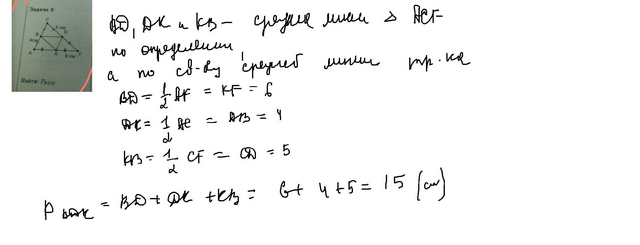 Задача 4
C
5 см
B
D
4 см
A
K
F
6 см
Найти: P
BD, DK и KB – средние линии △ ACF
по определению,
а по св-ву средней линии тр-ка
BD = 1/2 AF = KF = 6
DK = 1/2 AC = AB = 4
KB = 1/2 CF = CD = 5
P BDK = BD + DK + KB = 6 + 4 + 5 = 15 (см)